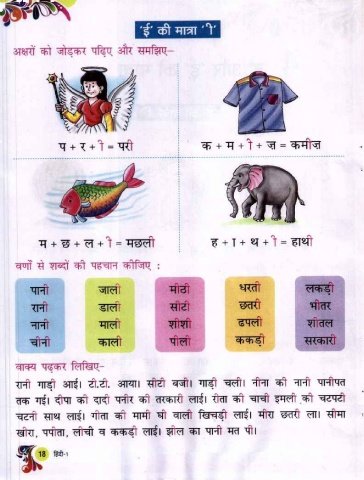 'ई' की मात्रा 'ी'
अक्षरों को जोड़कर पढ़िए और समझिए–
प + र + ी = परी
क + म + ी + ज = कमीज
म + छ + ल + ी = मछली
ह + ा + थ + ी = हाथी
वर्णों से शब्दों की पहचान कीजिए :
पानी जाली मीठी धरती लकड़ी
रानी डाली सीटी छतरी भीतर
नानी माली शीशी ढपली शीतल
चीनी काली पीली ककड़ी सरकारी
वाक्य पढ़कर लिखिए–
रानी गाड़ी आई। टी.टी. आया। सीटी बजी। गाड़ी चली। नीना की नानी पानीपत
तक गई। दीपा की दादी पनीर की तरकारी लाई। रीता की चाची इमली की चटपटी
चटनी साथ लाई। गीता की मामी घी वाली खिचड़ी लाई। मीरा छतरी ला। सीमा
खीरा, पपीता, लीची व ककड़ी लाई। झील का पानी मत पी।
18 हिंदी-1